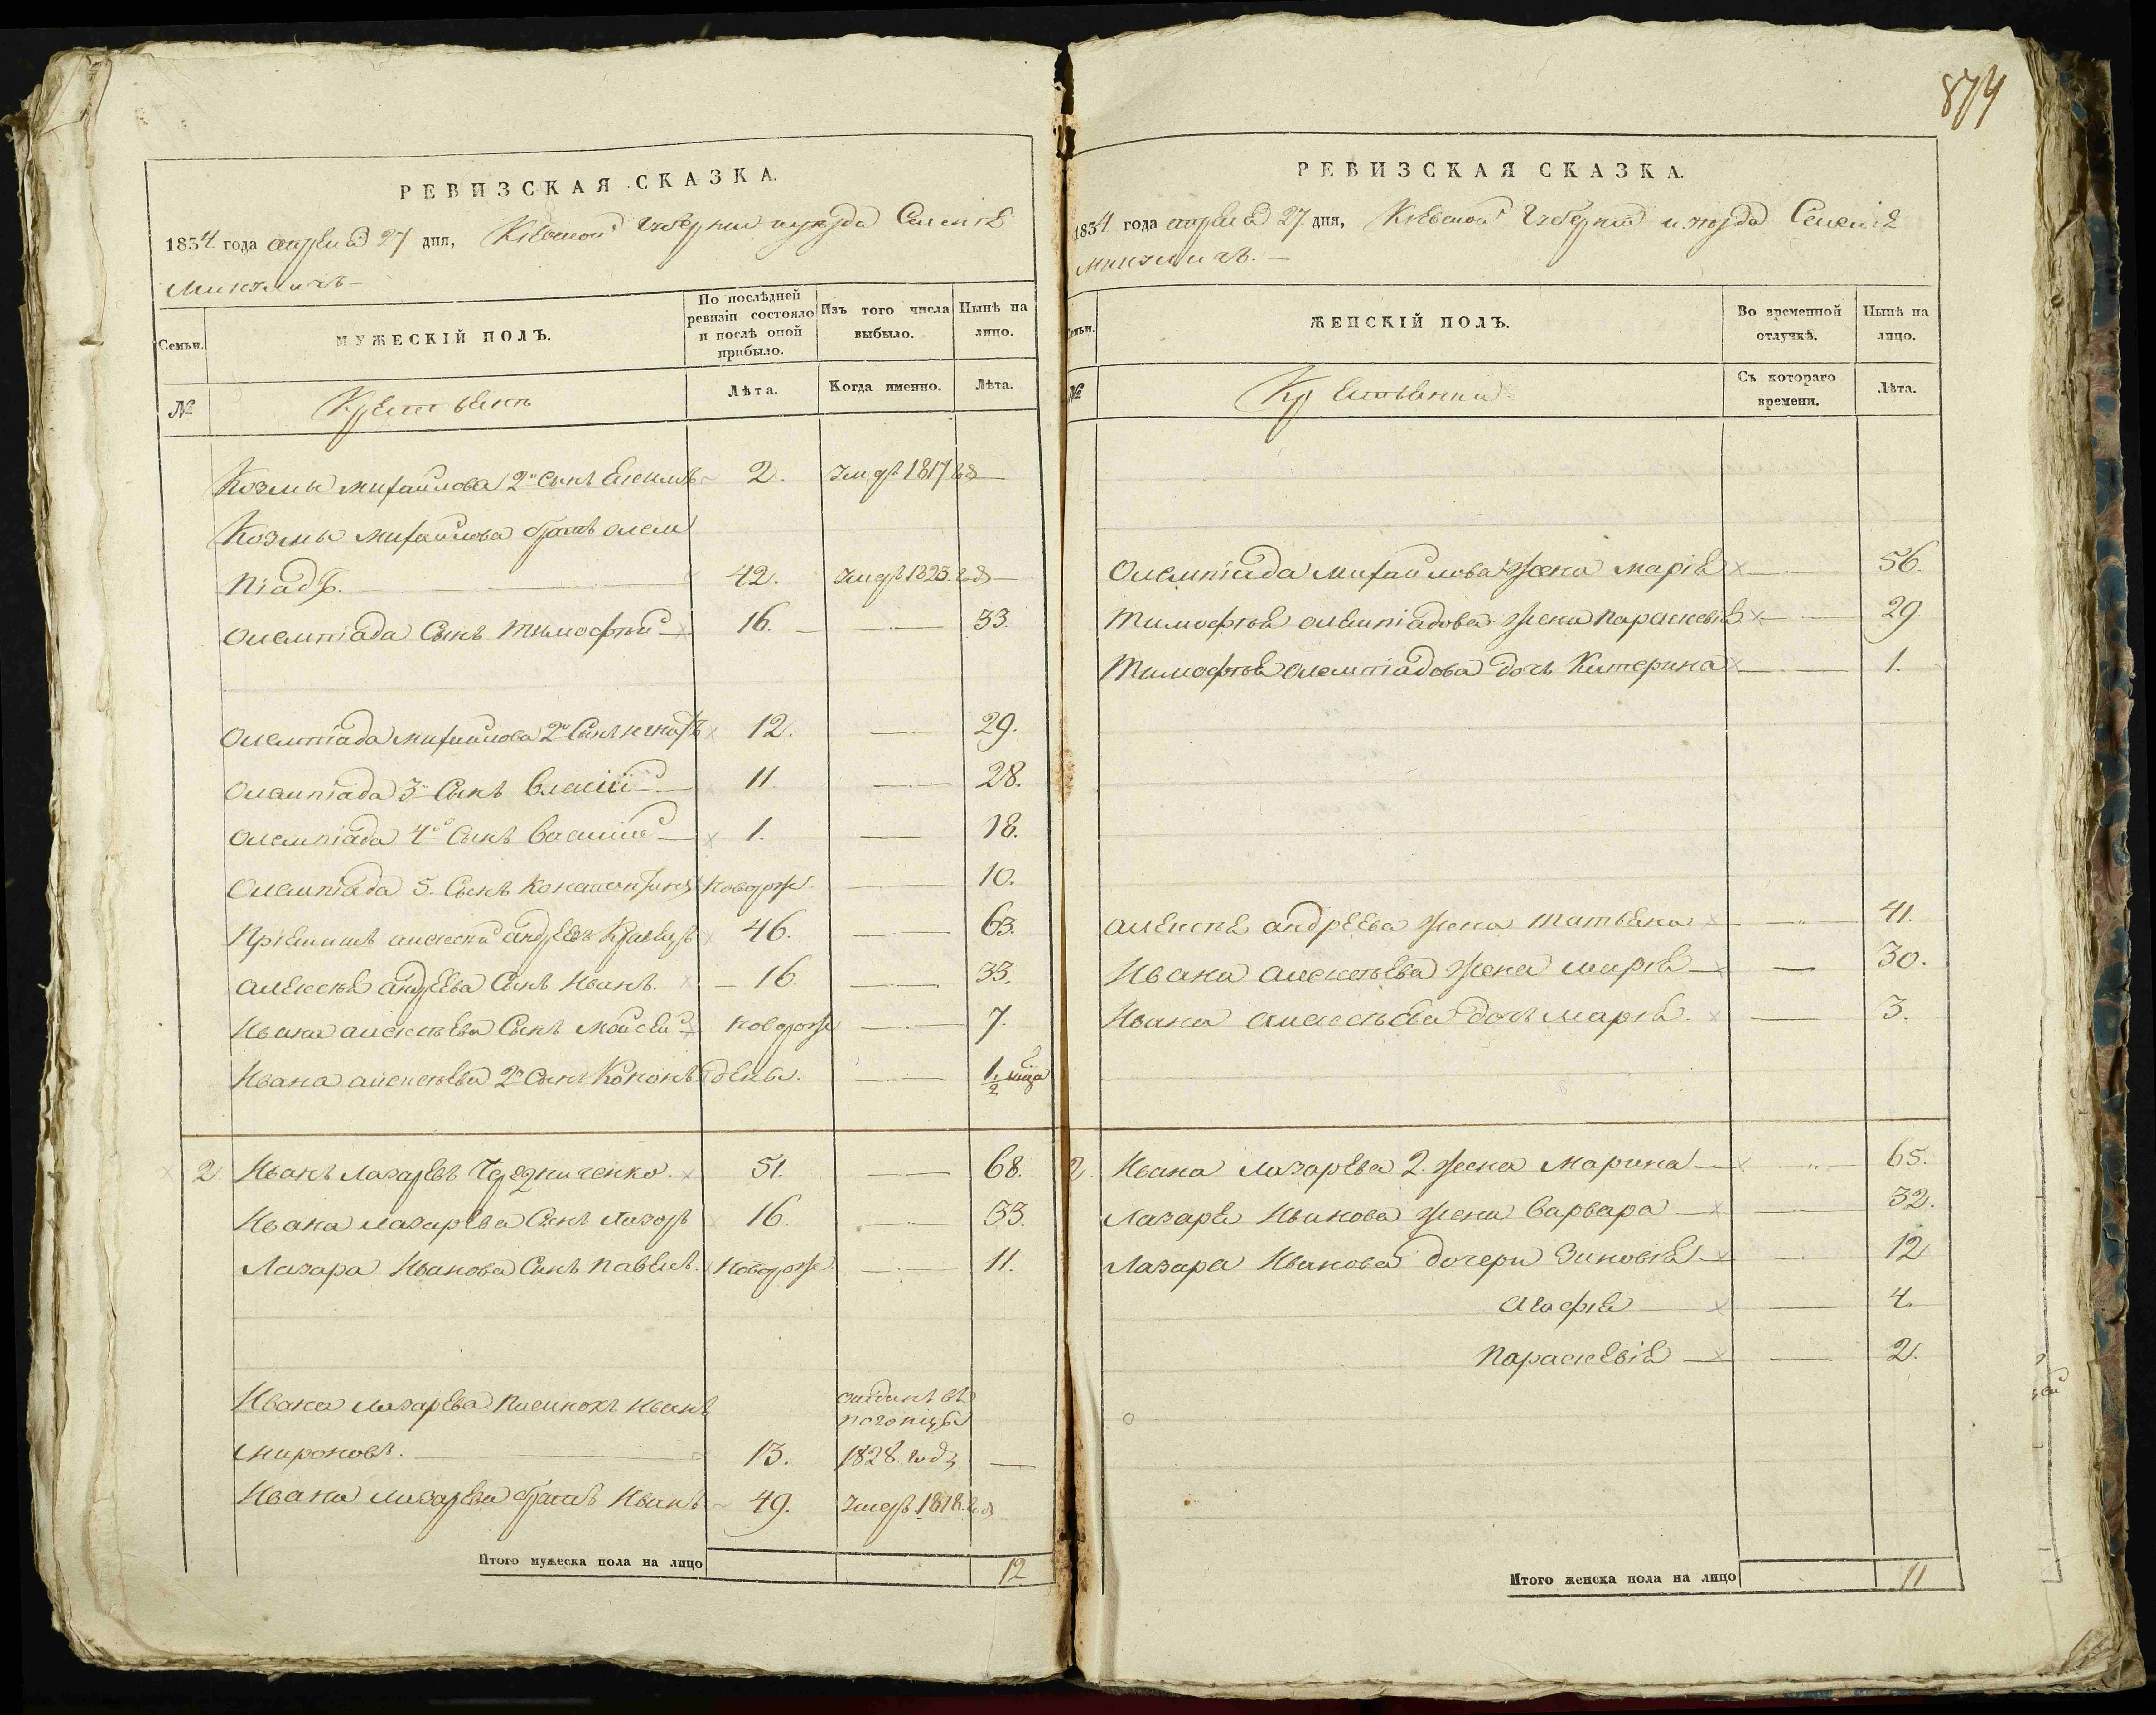 874
РЕВИЗСКАЯ СКАЗКА.
1834 года апреля 27 дня, Киевской Губернии и уезда Селения
Микуличъ
Семьи.
МУЖЕСКІЙ ПОЛЪ.
По послѣдней ревизіи состояло и послѣ оной прибыло.
Изъ того числа выбыло.
Нынѣ на лицо.
№
Крестьянъ
Лѣта.
Когда именно.
Лѣта.
Козмы Михайлова 2й Сынъ 2. умеръ 1817 год
Козмы Михайлова братъ Олем
піадъ. 42. умеръ 1823. год
Олемпіада Сынъ Тимофѣй 16. 33.
Олемпіада Михайлова 2й Сынъ 12. 29.
Олемпіада 3й Сынъ Власій 11 28.
Олемпіада 4й Сынъ Василій 1. 18.
Олемпіада 5. Сынъ Константинъ новорож. 10.
Пріемышъ Алексей Андреевъ 46. 63.
Алексея Андреева Сынъ Иванъ. 16. 33.
Ивана Алексѣева Сынъ Мойсей новорож 7.
Ивана Алексѣева 2й Сынъ Кононъ денъ. 1/2 мца
2 Иванъ Лазаревъ Чередниченко. 51. 68.
Ивана Лазарева Сынъ Лазарь 16. 33.
Лазара Иванова Сынъ Павелъ. новорож 11.
Ивана Лазарева Пасинокъ Иванъ отданъ въ
погонцы
Мироновъ. 13. 1828. году
Ивана Лазарева братъ Иванъ 49. умеръ 1818. год
Итого мужеска пола на лицо 12
РЕВИЗСКАЯ СКАЗКА.
1834 года апреля 27. дня, Киевской Губернии и уезда Селения
Микуличъ.
Семьи.
ЖЕНСКІЙ ПОЛЪ.
Во временной отлучкѣ.
Нынѣ на лицо.
№
Крестьянки
Съ котораго времени.
Лѣта.
Олемпіада Михайлова Жена Марія 56.
Тимофѣя Олемпіадова Жена Параскевія 29
Тимофѣя Олемпіадова дочь Катерина 1.
Алексея Андреева Жена Татьяна 41.
Ивана Алексѣева Жена Марія 30.
Ивана Алексѣева дочь Марія. 3.
2 Ивана Лазарева 2. Жена Марина 65.
Лазаря Иванова Жена Варвара 32.
Лазара Иванова дочери Зиновія 12
Агафія 4.
Параскевія 2.
Итого женска пола на лицо 11